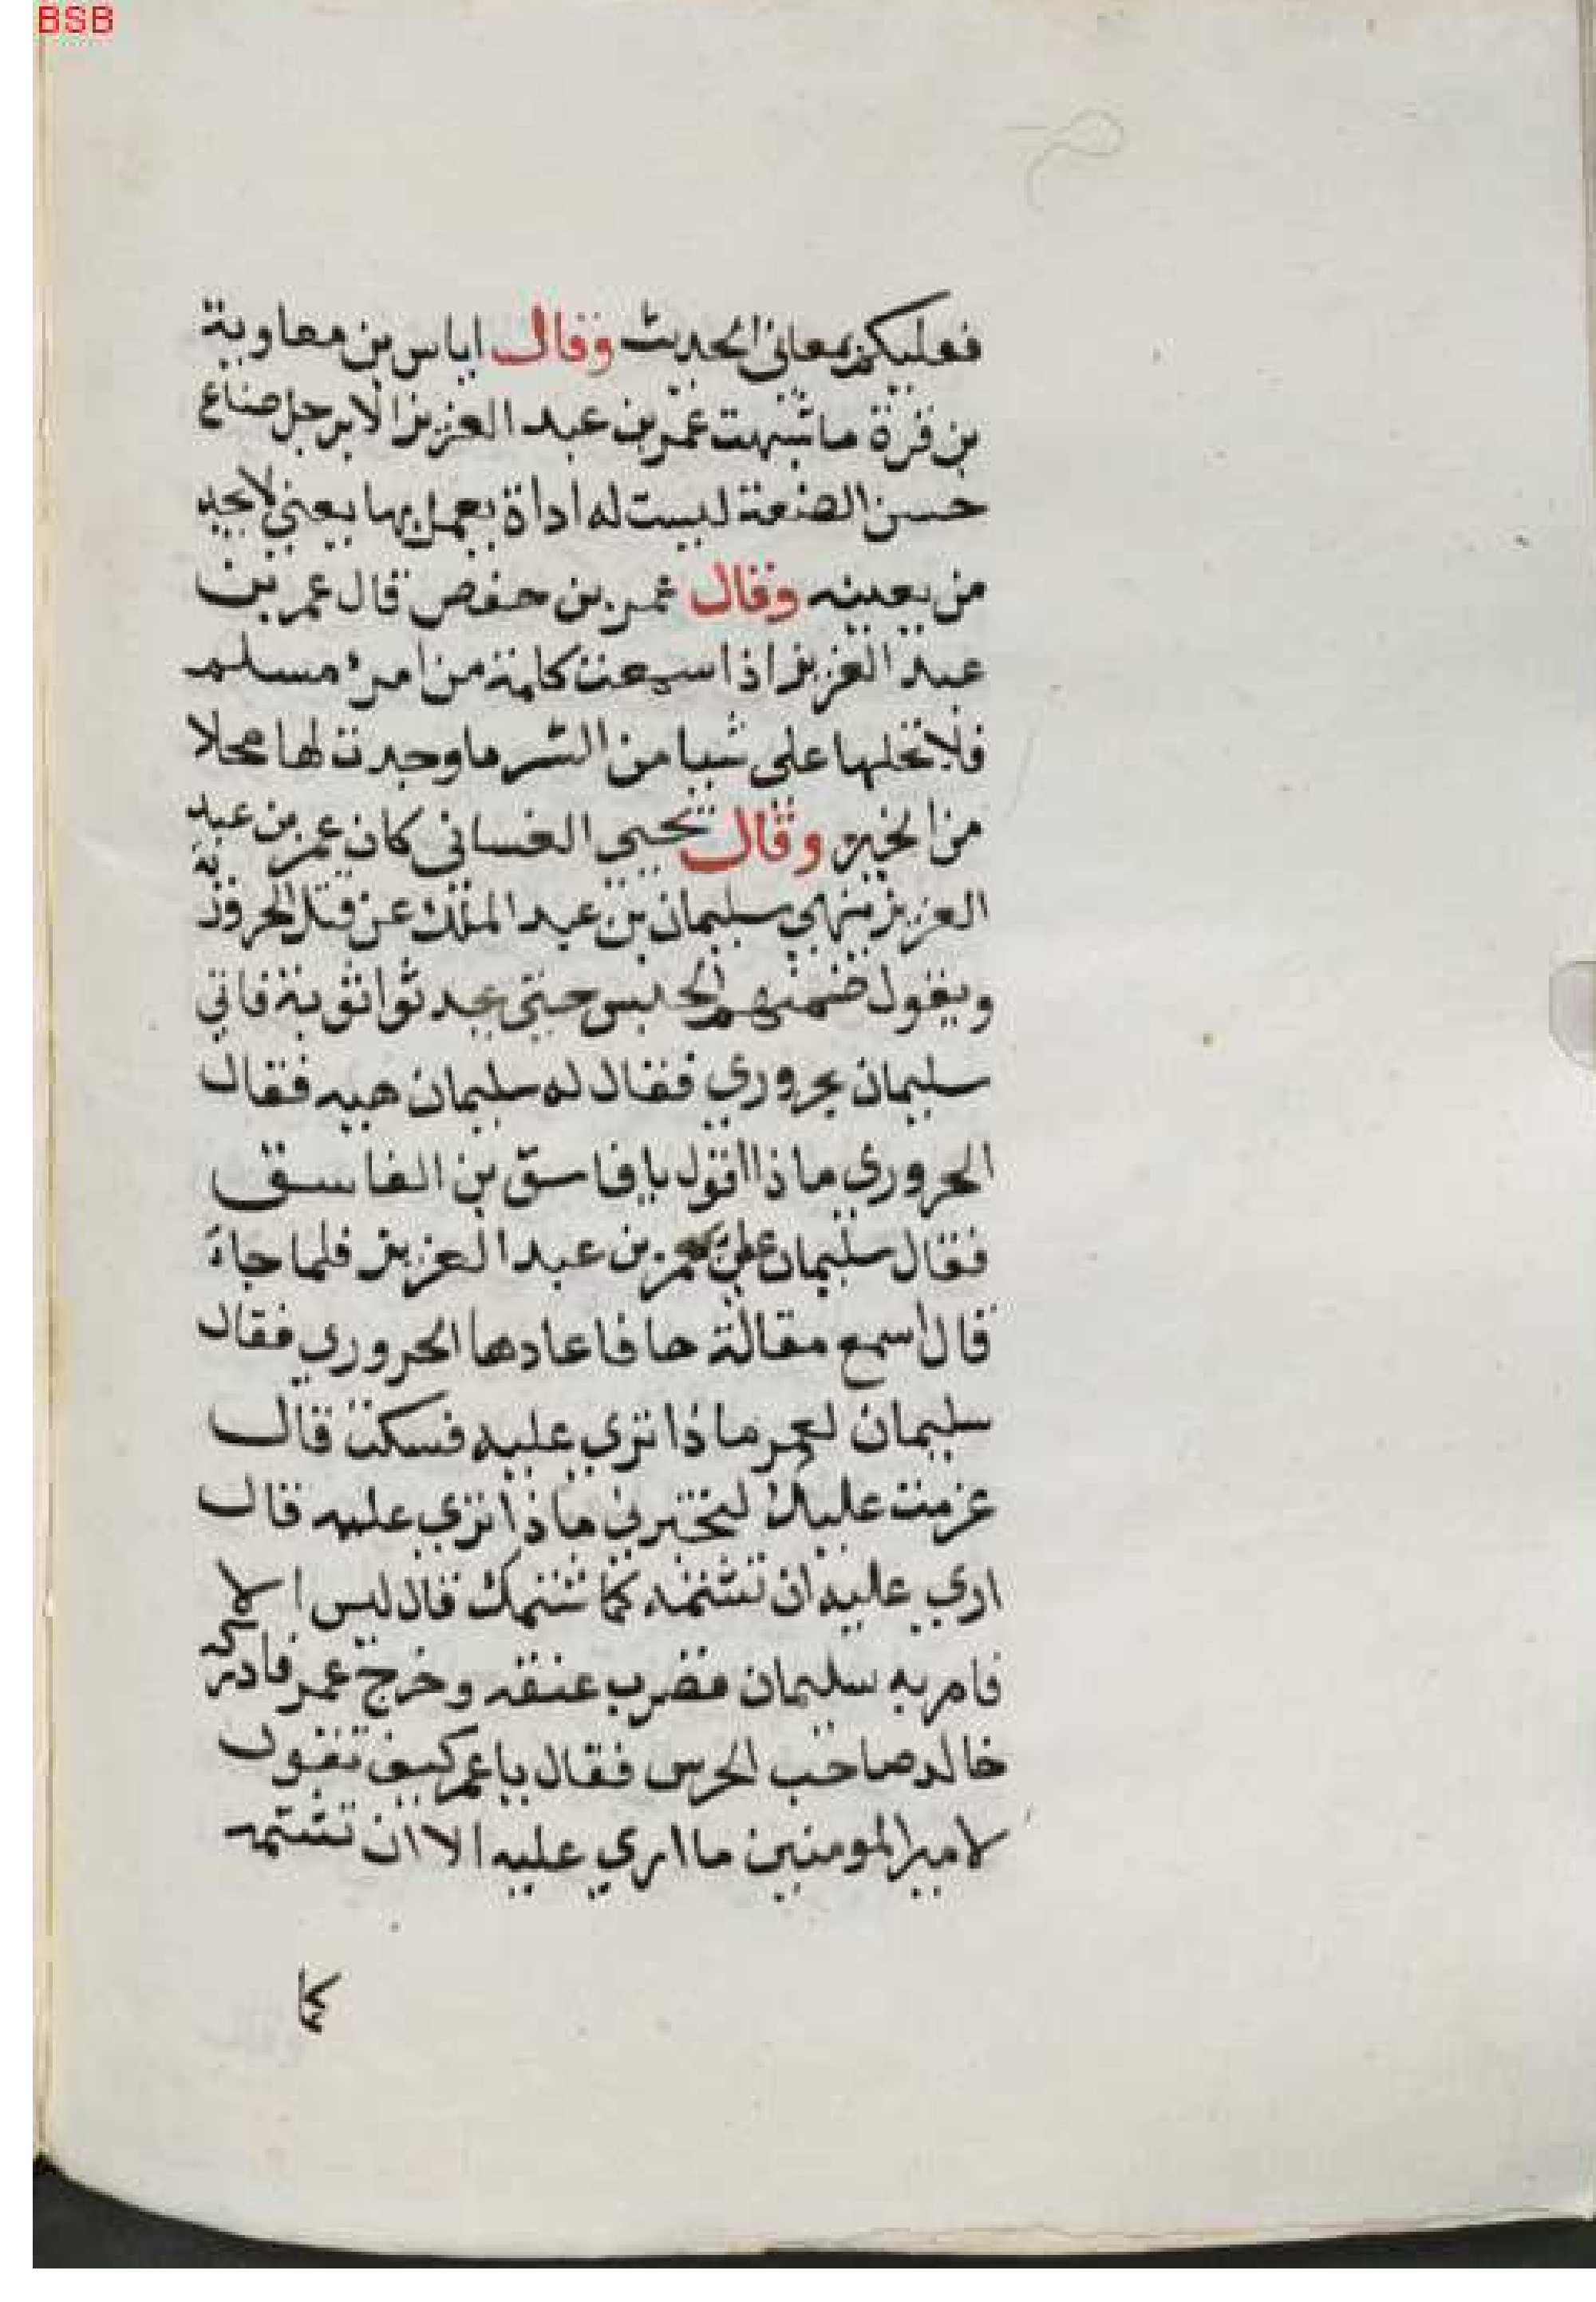 BSB
فعليكم بمعاني الحديث وقال اياس بن معاوية
بن قرة ما شبهت عمر بن عبد العزيز الا برجل صناع
حسن الصنعة ليست له اداة يعمل بها يعني لا يجد
من يعينه وقال عمر بن حفص قال عمر بن
عبد العزيز اذا سمعت كلمة من امرء مسلم
فلا تحملها على شيا من الشر ما وجدت لها محلا
من الخير وقال يحيي الغساني كان عمر بن عبد
العزيز ينهي سليمان بن عبد الملك عن قتل الحرورية
ويقول ضمنهم الحبس حتى يحدثوا توبة فاتي
سليمان بحروري فقال له سليمان هيه فقال
الحروري ماذا اقول يا فاسق بن الفاسق
فقال سليمان علي بعمر بن عبد العزيز فلما جاء
قال اسمع مقالة هذا فاعادها الحروري فقال
سليمان لعمر ماذا تري عليه فسكت قال
عزمت عليك لتخبرني ماذا تري عليه قال
اري عليه ان تشتمه كما شتمك قال ليس الامر
فامر به سليمان فضرب عنقه وخرج عمر فادركه
خالد صاحب الحرس فقال يا عمر كيف تقول
لامير المومنين ما اري عليه الا ان تشتمه
كما